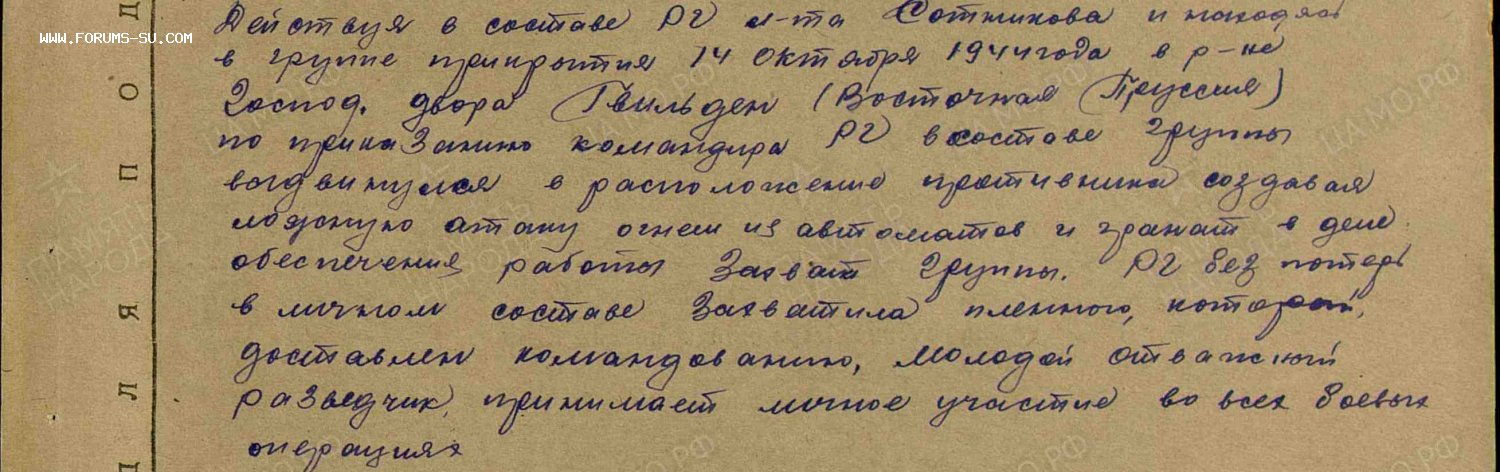 Действуя в составе РГ л-та Сотникова и находясь
WWW.FORUMS-SU.COM
в группе прикрытия 14 Октября 1944 года в р-не
Господ. двора Гвильден (Восточная Пруссия)
по приказанию командира РГ в составе группы
выдвинулся в расположение противника создавая
ложную атаку огнем из автоматов и гранат в деле
обеспечения работы Захват группы. РГ без потерь
в личном составе Захватила пленного, который
доставлен командованию, молодой отважный
разведчик, принимает личное участие во всех боевых
операциях
Д
О
П
Я
Л
Д